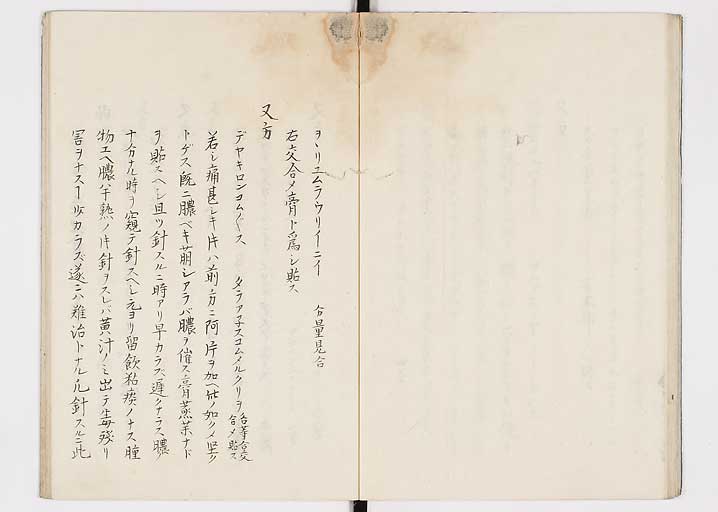 ヲヽリユムラウリイニイ 分量見合
右交合〆膏ト為シ貼ス
又方
デヤキロンヨムグス タラアヲスコムメルクリヲ 各等分交合〆貼ス
若シ痛甚シキ片ハ前ノ方ニ阿片ヲ加ヘ此ノ如ク〆堅ク
トゲス既ニ膿ベキ萠シアラバ膿ヲ催ス膏蒸薬ナド
ヲ貼スヘシ且ツ針スルニ時アリ早カラズ遅クナラス膿ノ
十分ナル時ヲ窺テ針スヘシ元ヨリ留飲粘痰ノナス腫
物エヘ膿ハ半熟ノ片針ヲスレバ黄汁ノミ出テ毒残リ
害ヲナスヿ少カラズ遂ニハ難治トナル凡針スルニ此